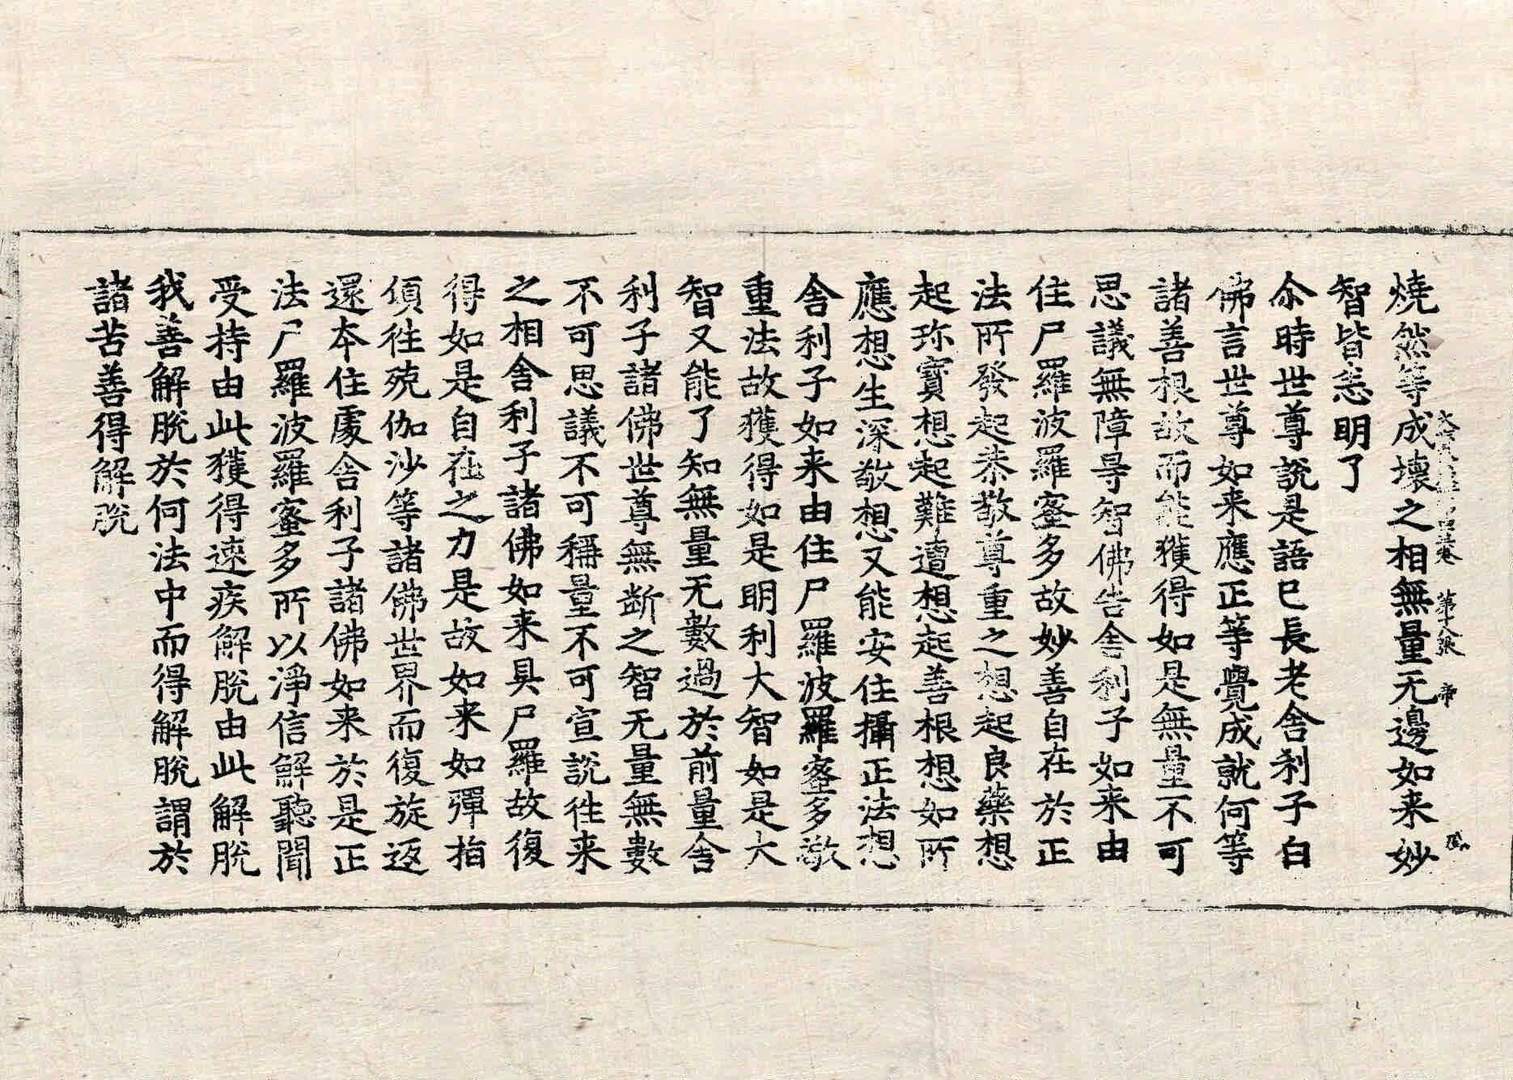 第十八張 帝
燒然等成壞之相無量无邊如来妙
智皆悉明了
尒時世尊說是語已長老舍利子白
佛言世尊如来應正等覺成就何等
諸善根故而能獲得如是無量不可
思議無障㝵智佛告舍利子如来由
住尸羅波羅蜜多故妙善自在於正
法所發起恭敬尊重之想起良藥想
起珎寶想起難遭想起善根想如所
應想生深敬想又能安住攝正法想
舍利子如来由住尸羅波羅蜜多敬
重法故獲得如是明利大智如是大
智又能了知無量无數過於前量舍
利子諸佛世尊無断之智无量無數
不可思議不可稱量不可宣說往来
之相舍利子諸佛如来具尸羅故復
得如是自在之力是故如来如彈指
頃往殑伽沙等諸佛世界而復旋返
還本住處舍利子諸佛如来於是正
法尸羅波羅蜜多所以淨信解聽聞
受持由此獲得速疾解脫由此解脫
我善解脫於何法中而得解脫謂於
諸苦善得解脫